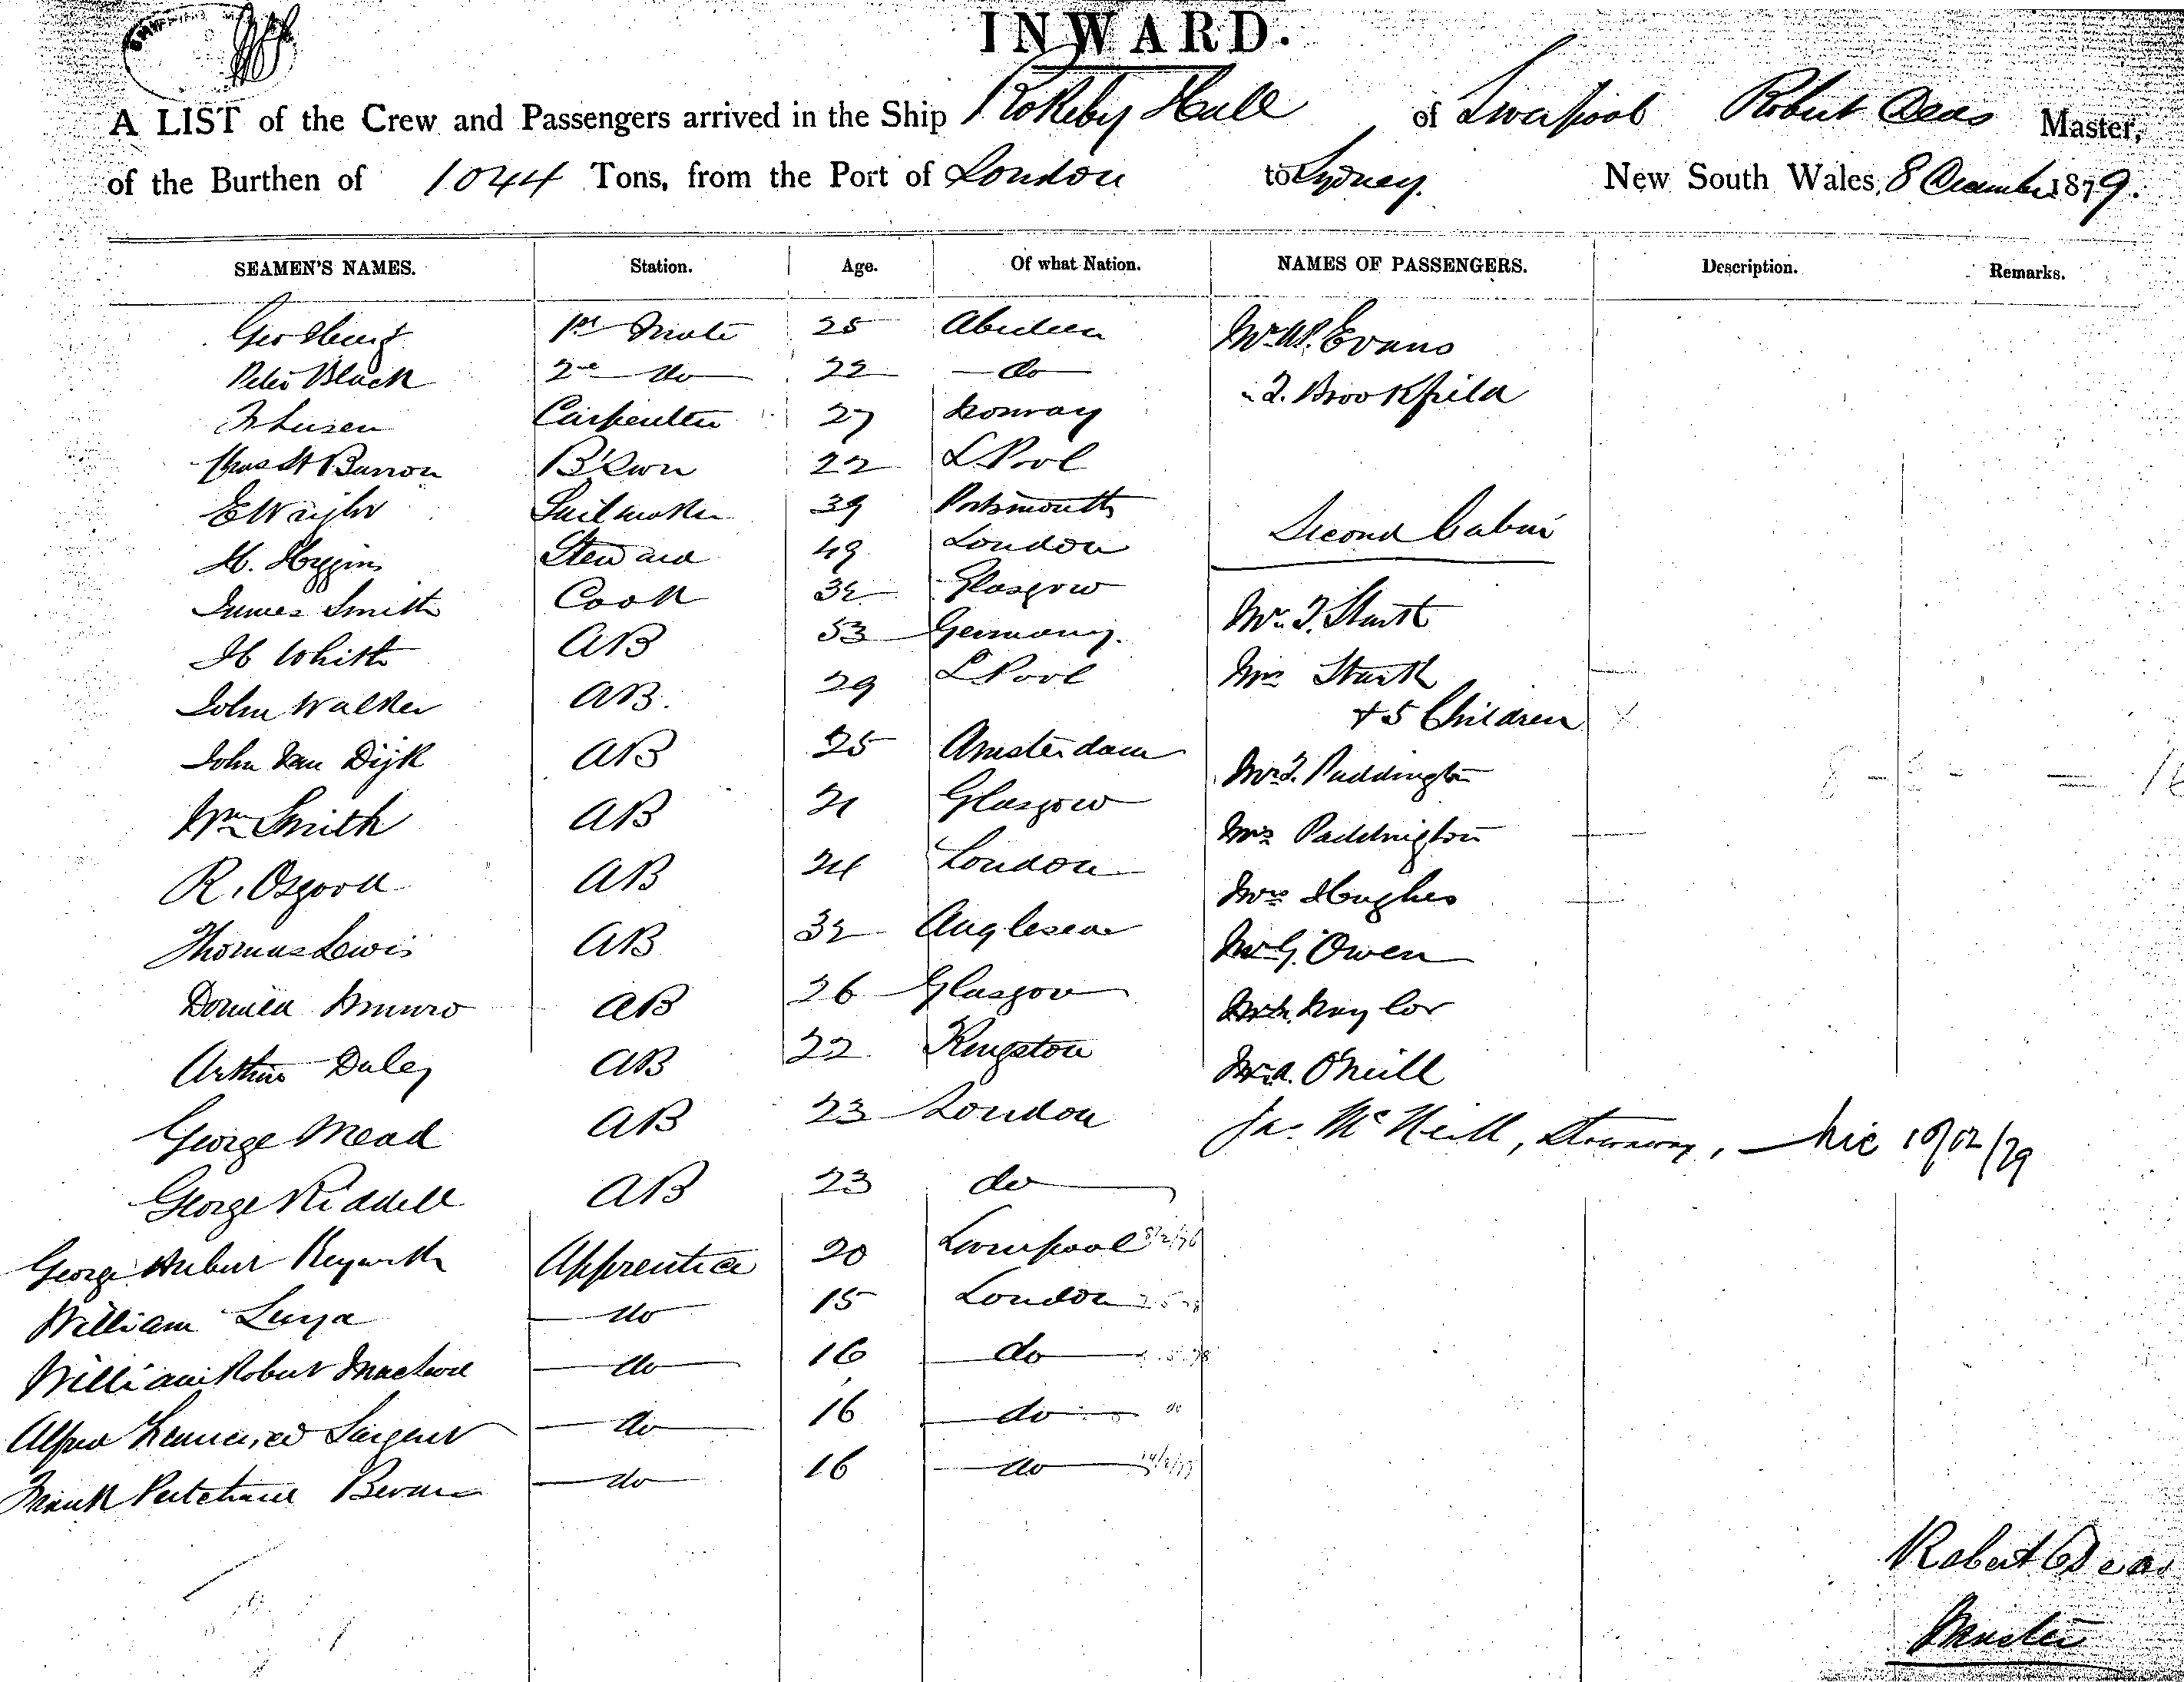 INWARD.
A LIST of the Crew and Passengers arrived in the Ship Rokeby Hall of Liverpool Robert Deas Master,
of the Burthen of 1044 Tons, from the Port of London to Sydney. New South Wales, 8 December 1879.
SEAMEN'S NAMES. Station. Age. Of what Nation. NAMES OF PASSENGERS. Description. Remarks.
Geo 1st Mate 25 Aberdeen Mr W. Evans
Peter Black 2nd do 22 do " J. Brookfield
Carpenter 27 Norway
Chas H Barron B'Swn 22 L'Pool
E Wright Sailmaker 39 Portsmouth Second Cabin
H. Steward 49 London
James Smith Cook 32 Glasgow Mr. J.
H White AB 53 Germany.
John Walker AB. 29 L'Pool Mrs
+ 5 Children
John Van Dijk AB 25 Amsterdam Mr J. Paddington
Wm Smith AB 21 Glasgow Mrs Paddington
R. Osgood AB 24 London Mrs Hughes
Thomas Lewis AB 32 Anglesea Mr G. Owen
Donald Munro AB 26 Glasgow Naylor
Arthur Daley AB 22 Kingston O'Neill
George Mead AB 23 London Jas. McNeill, Stowaway,
George Riddell AB 23 do
George Hubert Apprentice 20 Liverpool
William do 15 London
William Robert do 16 do
Alfred Sargent do 16 do
Frank Bevan do 16 do
Robert Deas
Master